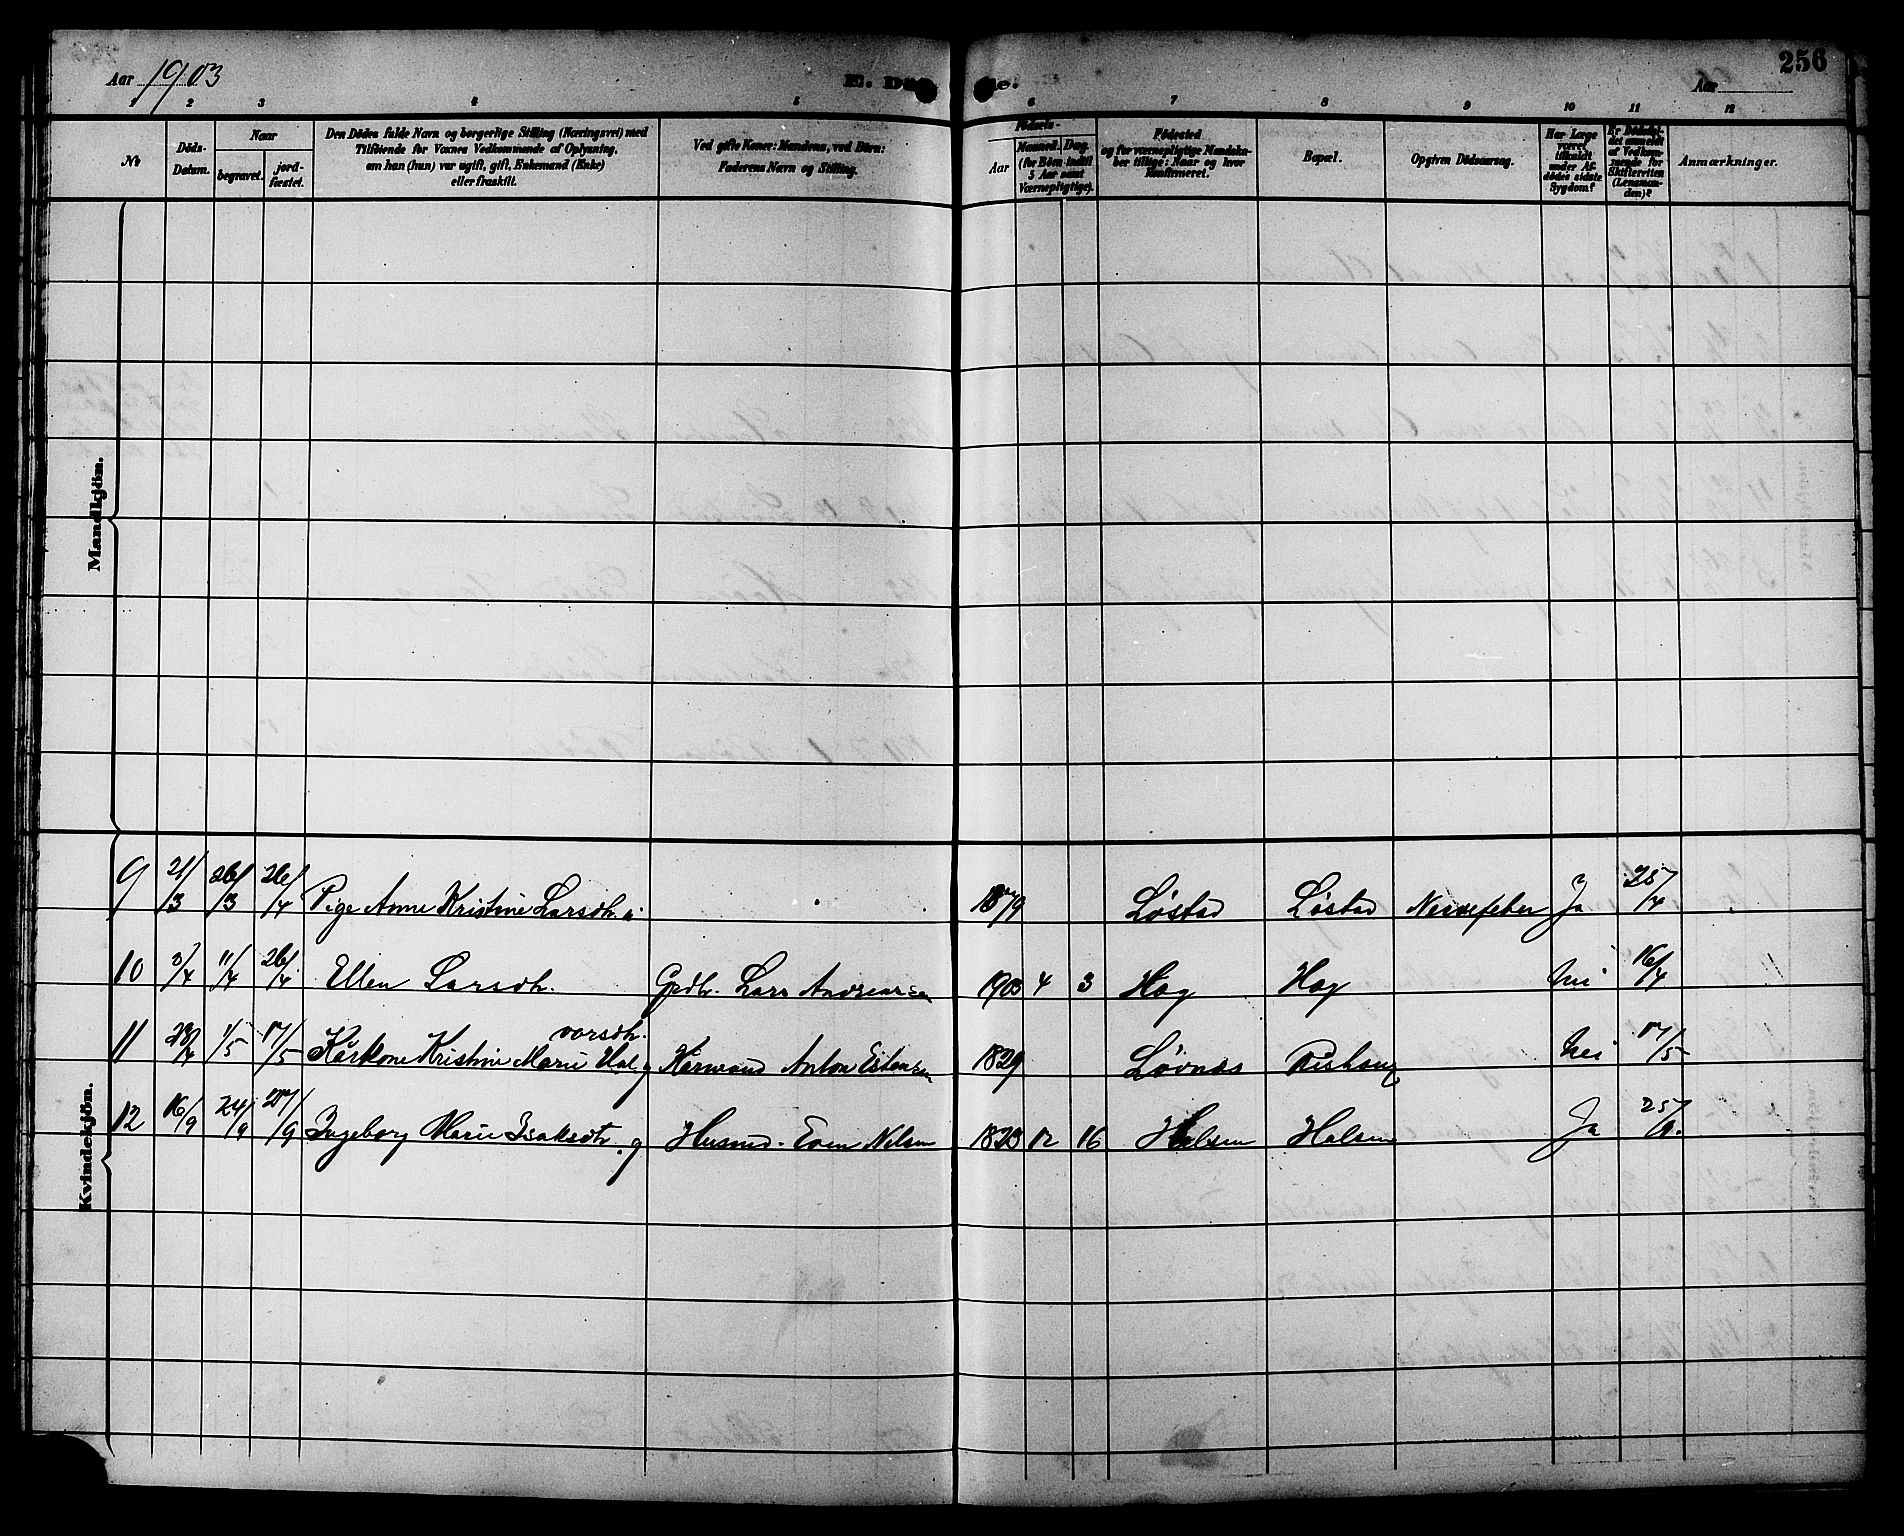 256
Aar 1903
E. Dø
de.
Aar
1 2 3 4 5 6 7 8 9 10 11 12
No
Döds-
Datum.
Naar
begravet.
jord-
fæstet.
Den Dödes fulde Navn og borgerlige Stilling (Næringsvei) med
Tilföiende for Voxnes Vedkommende af Oplysning,
om han (hun) var ugift, gift, Enkemand (Enke)
eller fraskilt.
Ved gifte Koner: Mandens, ved Börn:
Faderens Navn og Stilling.
Födsels-
Aar
Maaned. Dag.
(for Börn indtil
5 Aar samt
Værnepligtige).
Födested
og for værnepligtige Mandska-
ber tillige: Naar og hvor
konfirmeret.
Bopæl.
Opgiven Dödsaarsag.
Har Læge
været
tilkaldt
under Af-
dödes sidste
Sygdom?
Er Dödsfal-
det anmeldt
af Vedkom-
mende for
Skifteretten
(Lensman-
den)?
Anmærkninger.
Mandkjön.
Kvindekjön.
9 21/3 26/3 26/4 Pige Anne Kristine Larsdtr. u. 1879 Løstad Løstad Nervefeber Ja 25/4
10 3/4 11/4 26/4 Ellen Larsdtr. Grdbr. Lars Andreassen 1903 4 3 Hog Hog Nei 16/4
vorsdtr.
11 23/4 1/5 17/5 Kaarkone Kristine Marie Hal g Kaarmand Anton Estensen 1829 Løvnes Nei 17/5
12 16/9 24/9 27/9 Ingeborg Marie Isaksdtr. g Husmd. Even Nilsen 1823 12 16 Halsen Halsen Ja 25/9.